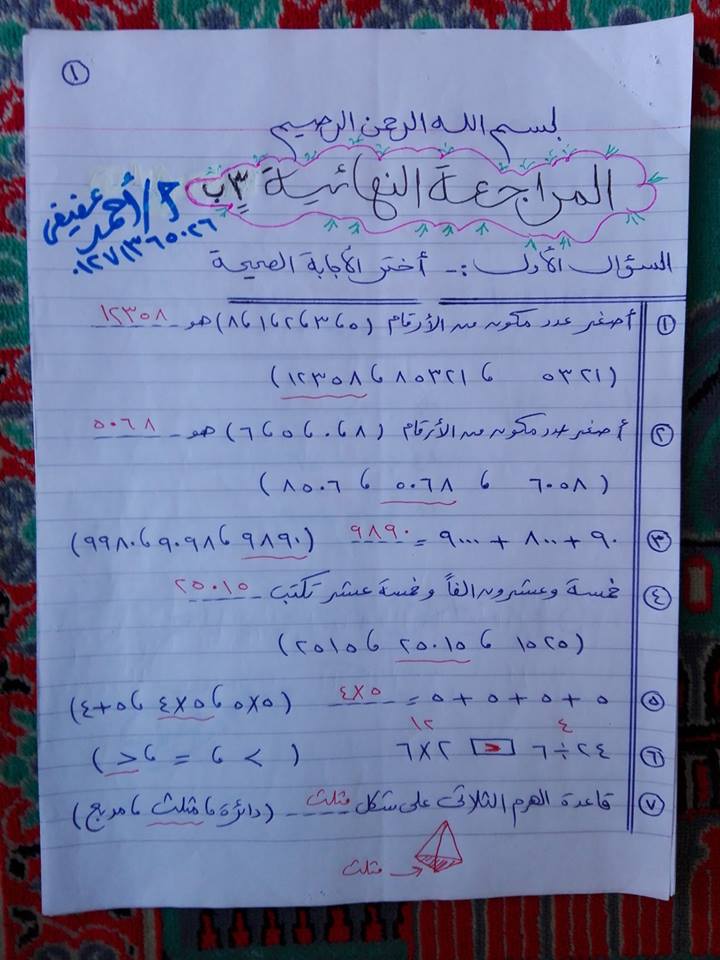 ١
بسم الله الرحمن الرحيم
المراجعة النهائية ٣ب
م/أحمد عفيفى
٠١٢٧١٣٦٥٠٢٦
السؤال الأول :- أختر الأجابة الصحيحة
١ أصغر عدد مكون من الأرقام (٥، ٣، ٢، ١، ٨) هو ١٢٣٥٨
(٥٣٢١ ، ٨٥٣٢١ ، ١٢٣٥٨)
٢ أصغر عدد مكون من الأرقام (٨، ٠، ٥، ٦) هو ٥٠٦٨
(٦٠٥٨ ، ٥٠٦٨ ، ٨٥٠٦)
٣ ٩٠ + ٨٠٠ + ٩٠٠٠ = ٩٨٩٠ (٩٨٩٠ ، ٩٠٩٨ ، ٩٩٨٠)
٤ خمسة وعشرون الفاً وخمسة عشر تكتب ٢٥٠١٥
(١٥٢٥ ، ٢٥٠١٥ ، ٢٥١٥)
٥ ٥ + ٥ + ٥ + ٥ = ٤×٥ (٥×٥ ، ٤×٥ ، ٤+٥)
٤ ١٢
٦ ٢٤ ÷ ٦ > ٢×٦ ( < ، = ، > )
٧ قاعدة الهرم الثلاثى على شكل مثلث (دائرة ، مثلث ، مربع)
مثلث